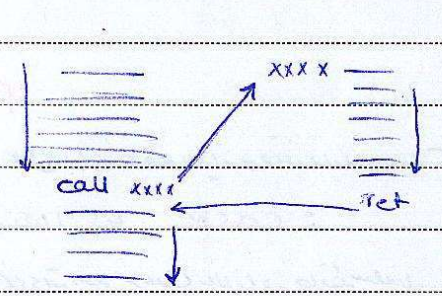 xxxx
call xxxx
ret